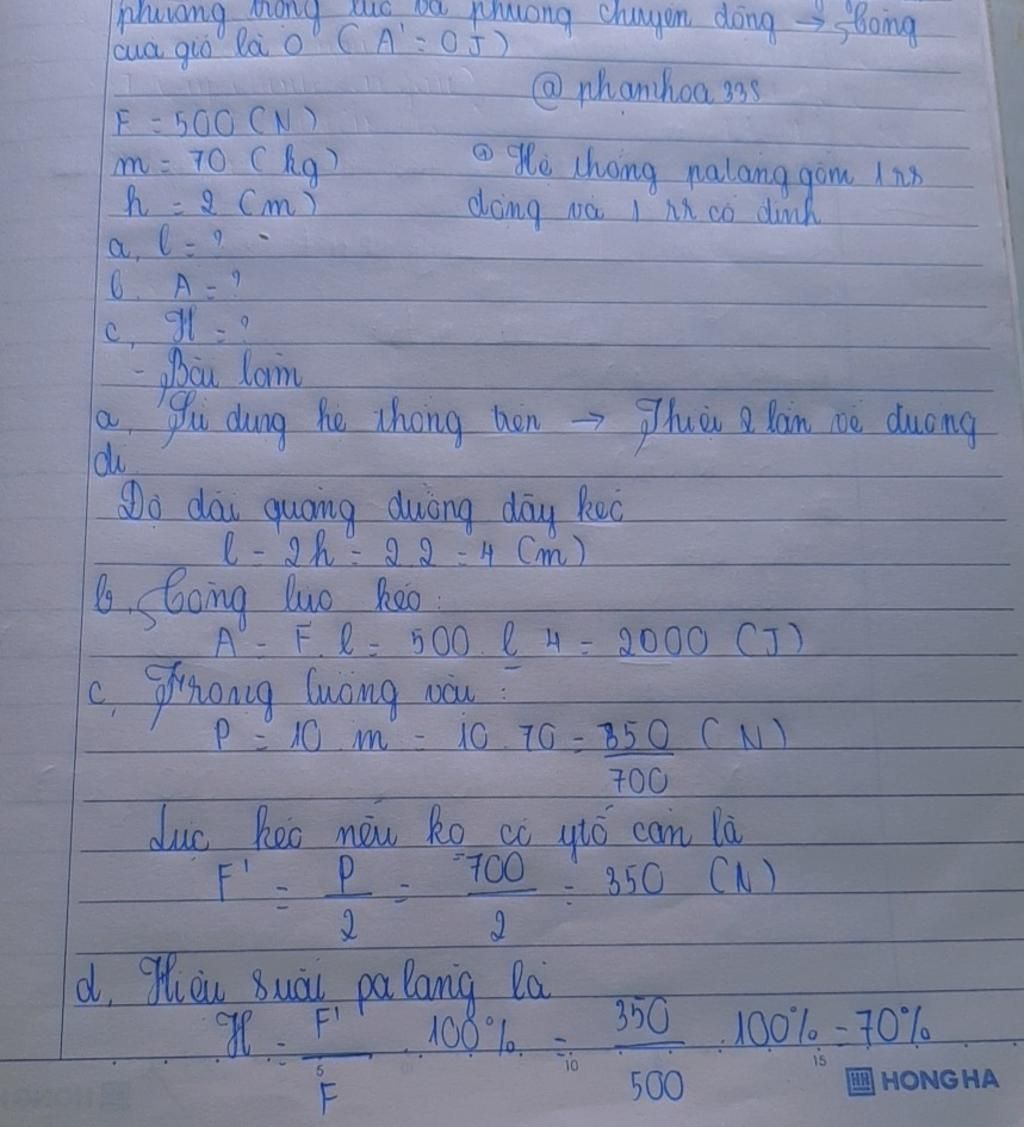 phương trọng lực và phương chuyển động → Công
của gió là 0 (A' = 0J)
@phamhoa335
F = 500 (N)
m = 70 (kg)
⊕ Hệ thống palang gồm 1 rr
h = 2 (m)
động và 1 rr cố định
a, l = ?
b. A = ?
c, H = ?
- Bài làm
a, Sử dụng hệ thống trên → Thiệt 2 lần về đường
đi
Độ dài quãng đường dây kéo
l = 2h = 2.2 = 4 (m)
b, Công lực kéo:
A = F.l = 500.l 4 = 2000 (J)
c, Trọng lượng vật:
P = 10 m = 10.70 = 350 (N)
700
Lực kéo nếu ko có ytố cản là
F' = P/2 = 700/2 = 350 (N)
d, Hiệu suất palang là
H = F'/F . 100% = 350/500 . 100% = 70%
5 10 15
HH HONG HA